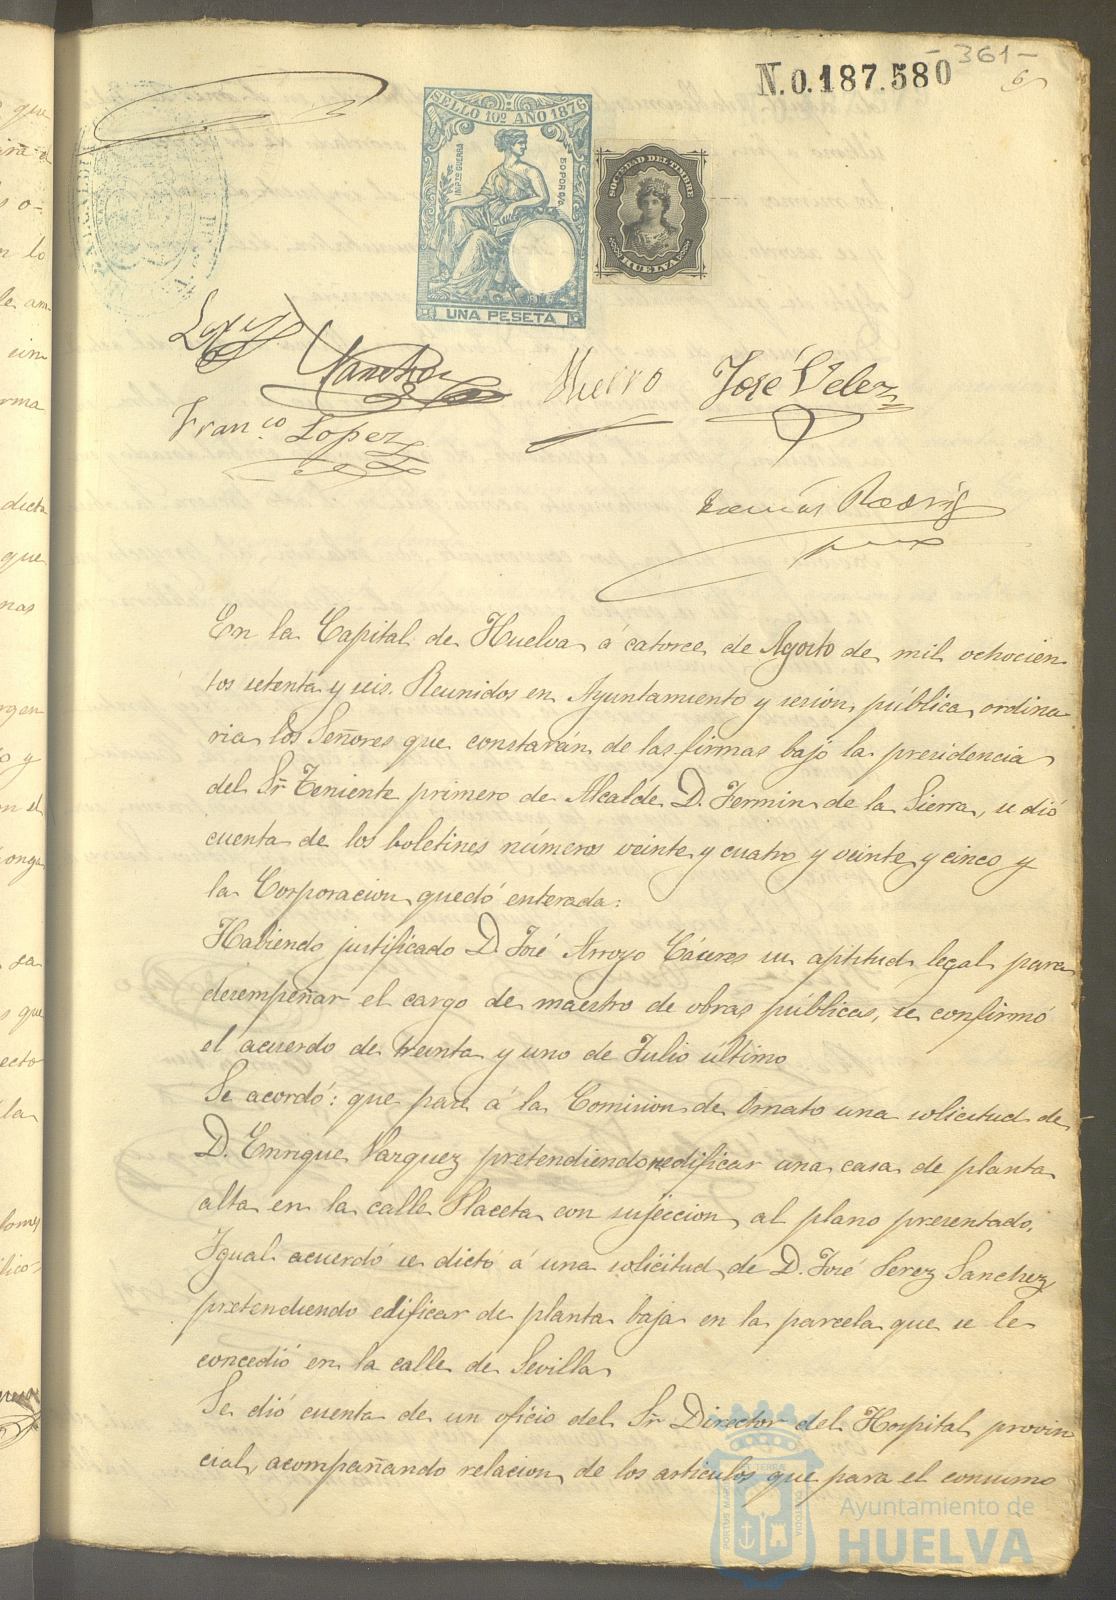 -361-
6
N.0.187.580
SELLO 10º AÑO 1876
IMPTO GUERRA
50 POR 0/0
UNA PESETA
SOCIEDAD DEL TIMBRE
HUELVA
Lopez
Sanchez
José Velez
Franco Lopez
Tomás Rodrig
uez
En la Capital de Huelva á catorce de Agosto de mil ochocien
tos setenta y seis. Reunidos en Ayuntamiento y sesion pública ordina
ria los Señores que constarán de las firmas bajo la presidencia
del Sr Teniente primero de Alcalde D. Fermin de la Sierra, se dió
cuenta de los boletines números veinte y cuatro y veinte y cinco y
la Corporacion quedó enterada:
Habiendo justificado D. José Arroyo Cáceres su aptitud legal para
desempeñar el cargo de maestro de obras públicas, se confirmó
el acuerdo de treinta y uno de Julio último
Se acordó: que pase á la Comision de Ornato una solicitud de
D. Enrique Vazquez pretendiendo redificar una casa de planta
alta en la calle Placeta con sujeccion al plano presentado.
Igual acuerdó se dictó á una solicitud de D. José Perez Sanchez
pretendiendo edificar de planta baja en la parcela que se le
concedió en la calle de Sevilla
Se dió cuenta de un oficio del Sr Director del Hospital provin
cial, acompañando relacion de los articulos que para el consumo
Ayuntamiento de
HUELVA